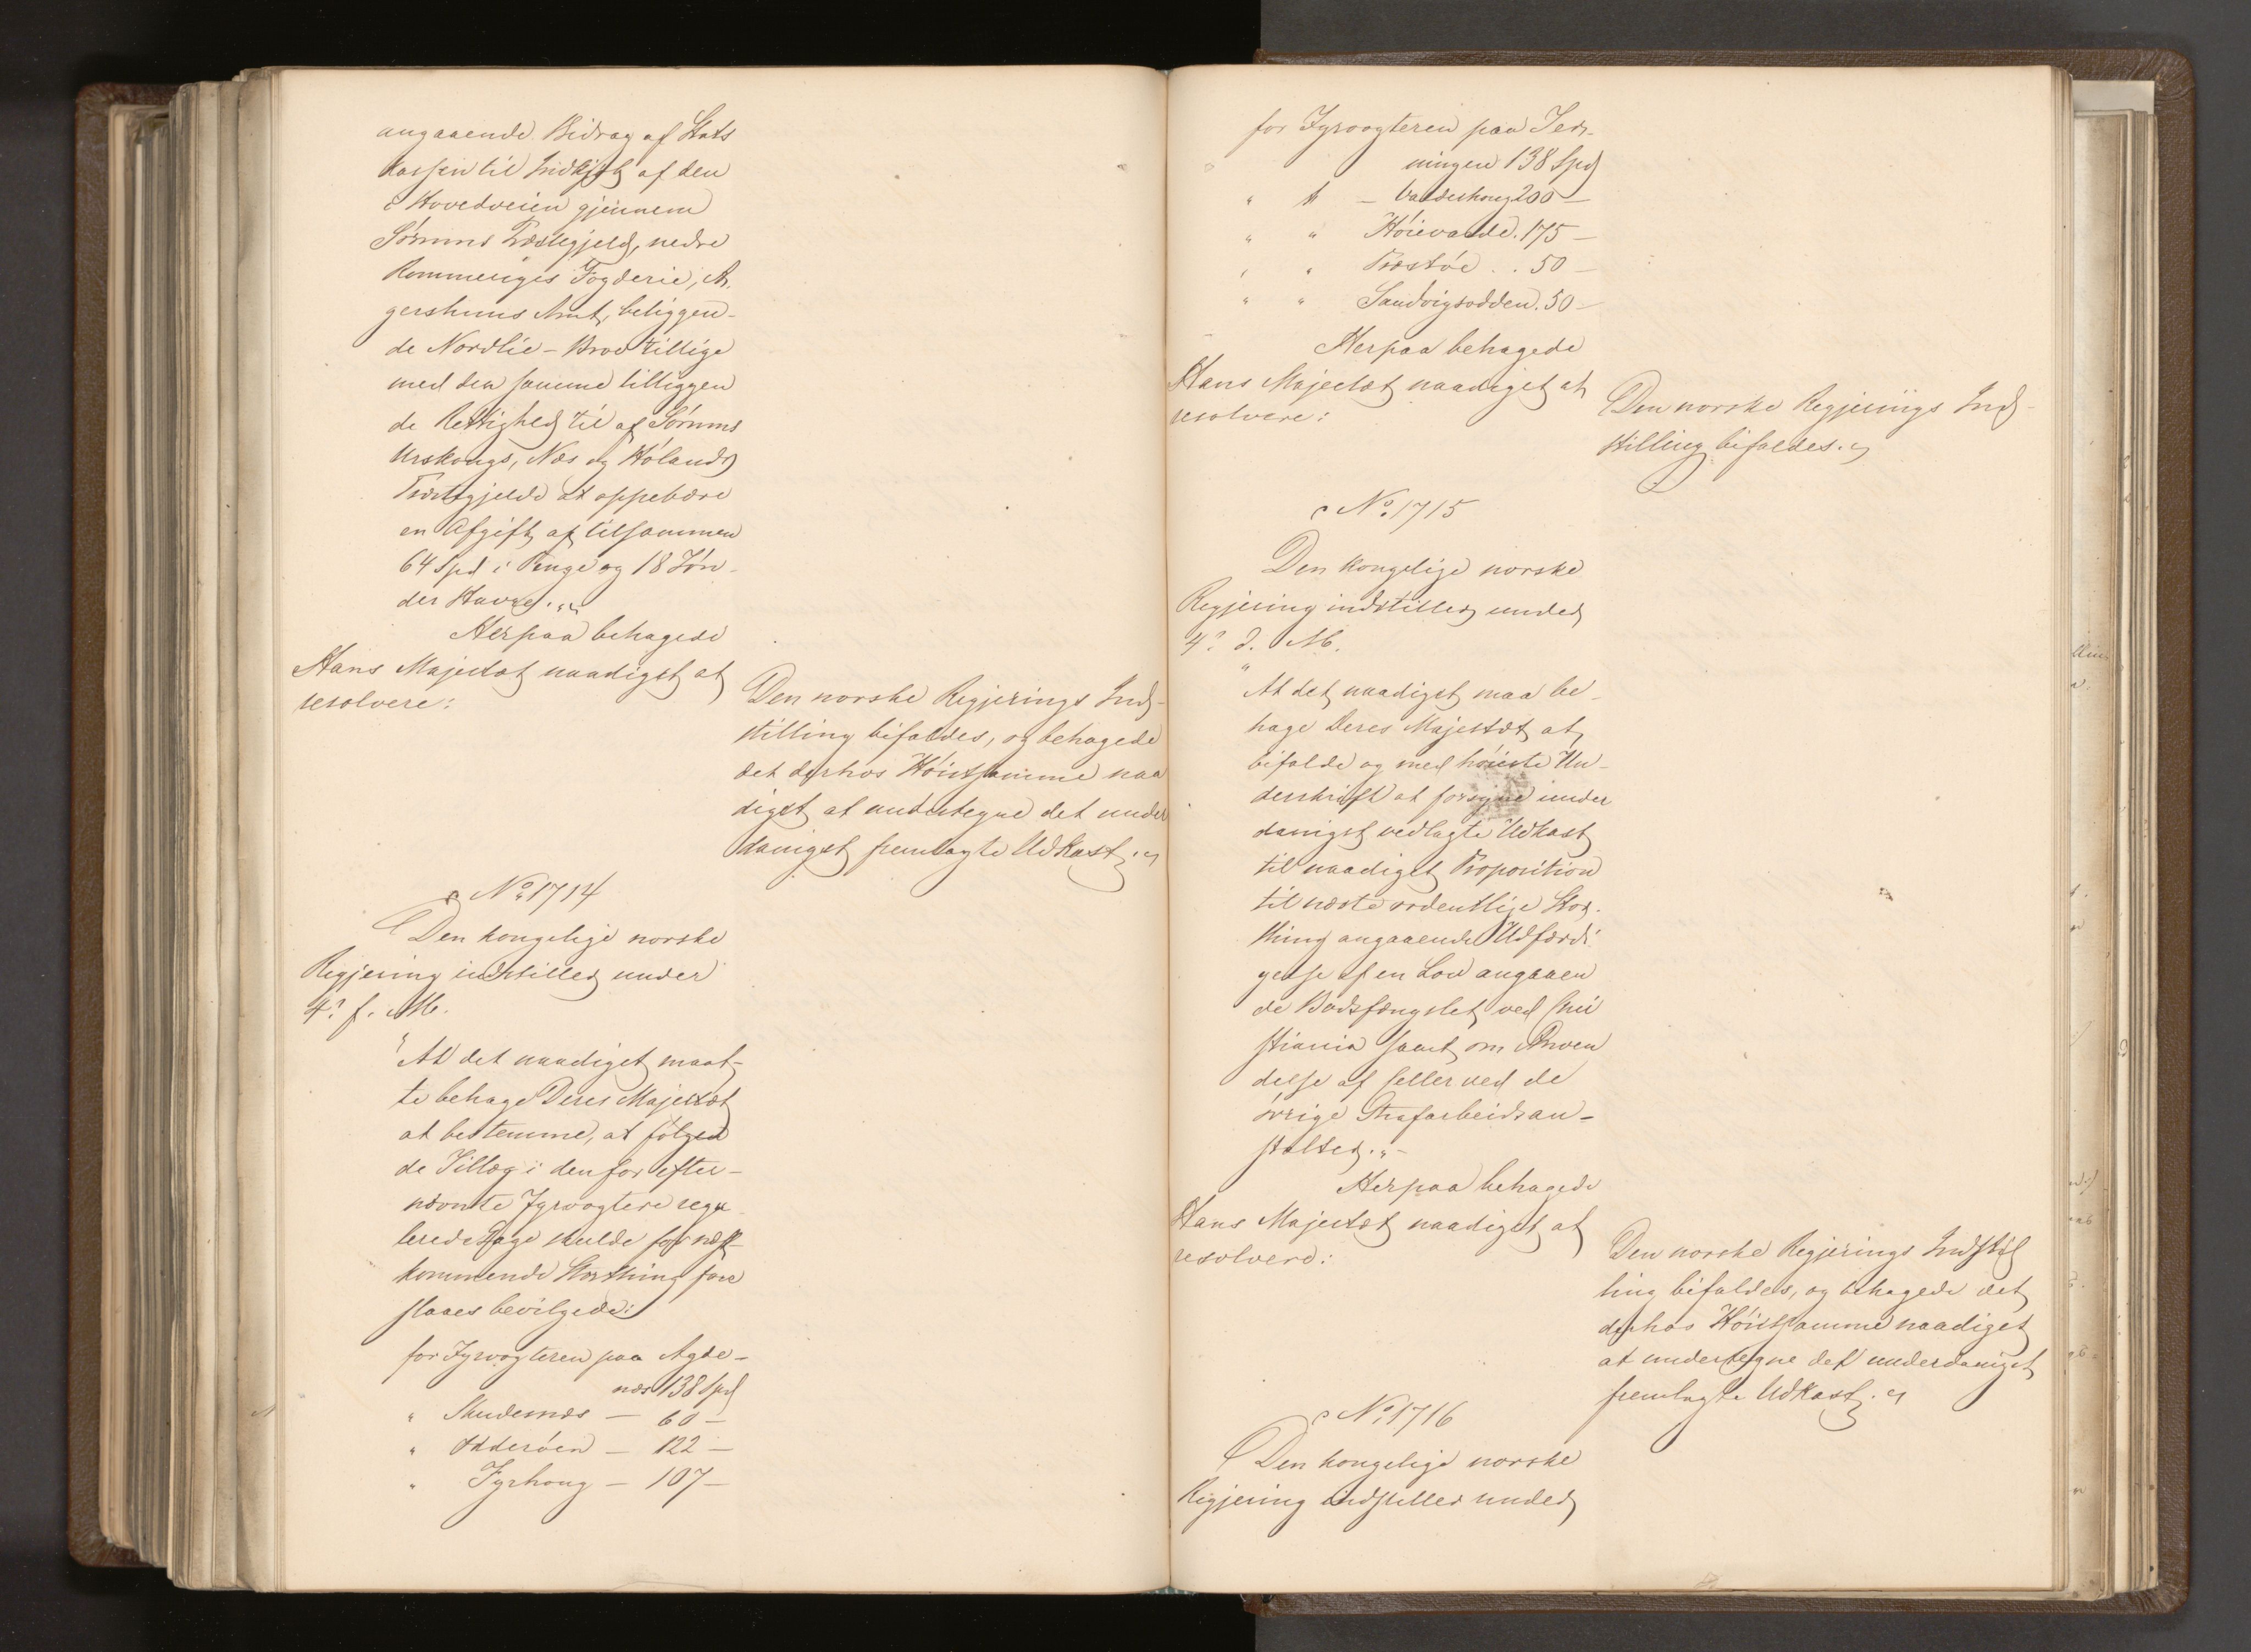 angaaende Bidrag af Stats
kassen til Indkjøb af den
i Hovedveien gjennem
Sørums Præstegjeld, nedre
Rommeriges Fogderie, A-
gershuus Amt, beliggen-
de Nordlie-Broe tillige
med den samme tilliggen
de Rettighed til af Sørums
Urskougs, Næs og Hølands
Præstegjelde at oppebære
en Afgift af tilsammen
64 Spd i Penge og 18 Tøn-
der Havre."
Herpaa behagede
Hans Majestæt naadigst at
resolvere:
Den norske Regjerings Ind-
stilling bifaldes, og behagede
det derhos Høistsamme naa
digst at undertegne det under
danigst fremlagte Udkast.
No 1714
Den kongelige norske
Regjering indstiller under
4de f. M.
"At det naadigst maat-
te behage Deres Majestæt
at bestemme, at følgen
de Tillæg i den for efter-
nævnte Fyrvogtere regu
lerede Gage skulde for næst-
kommende Storthing fore
slaaes bevilgede:
for Fyrvogteren paa Agde-
næs 138 Spd
" Skudesnæs - 60 -
" Odderøen - 122 -
" Fyrhoug - 107 -
for Fyrvogteren paa Ter-
ningen 138 Spd
" " - Valderhoug 200 -
" " Høievarde. 175 -
" " Præstøe . . 50 -
" " Sandvigsodden. 50 -
Herpaa behagede
Hans Majestæt naadigst at
resolvere:
Den norske Regjerings Ind-
stilling bifaldes.
No 1715
Den kongelige norske
Regjering indstiller under
4de d. M.
"At det naadigst maa be-
hage Deres Majestæt at
bifalde og med høieste Un-
derskrift at forsyne under
danigst vedlagte Udkast
til naadigst Proposition
til næste ordentlige Stor-
thing angaaende Udfærdi-
gelse af en Lov angaaen
de Bodsfængslet ved Chri
stiania samt om Anven
delse af Celler ved de
øvrige Strafarbeidsan-
stalter."
Herpaa behagede
Hans Majestæt naadigst at
resolvere:
Den norske Regjerings Indstil
ling bifaldes, og behagede det
derhos Høistsamme naadigst
at undertegne det underdanigst
fremlagte Udkast.
No 1716
Den kongelige norske
Regjering indstiller under